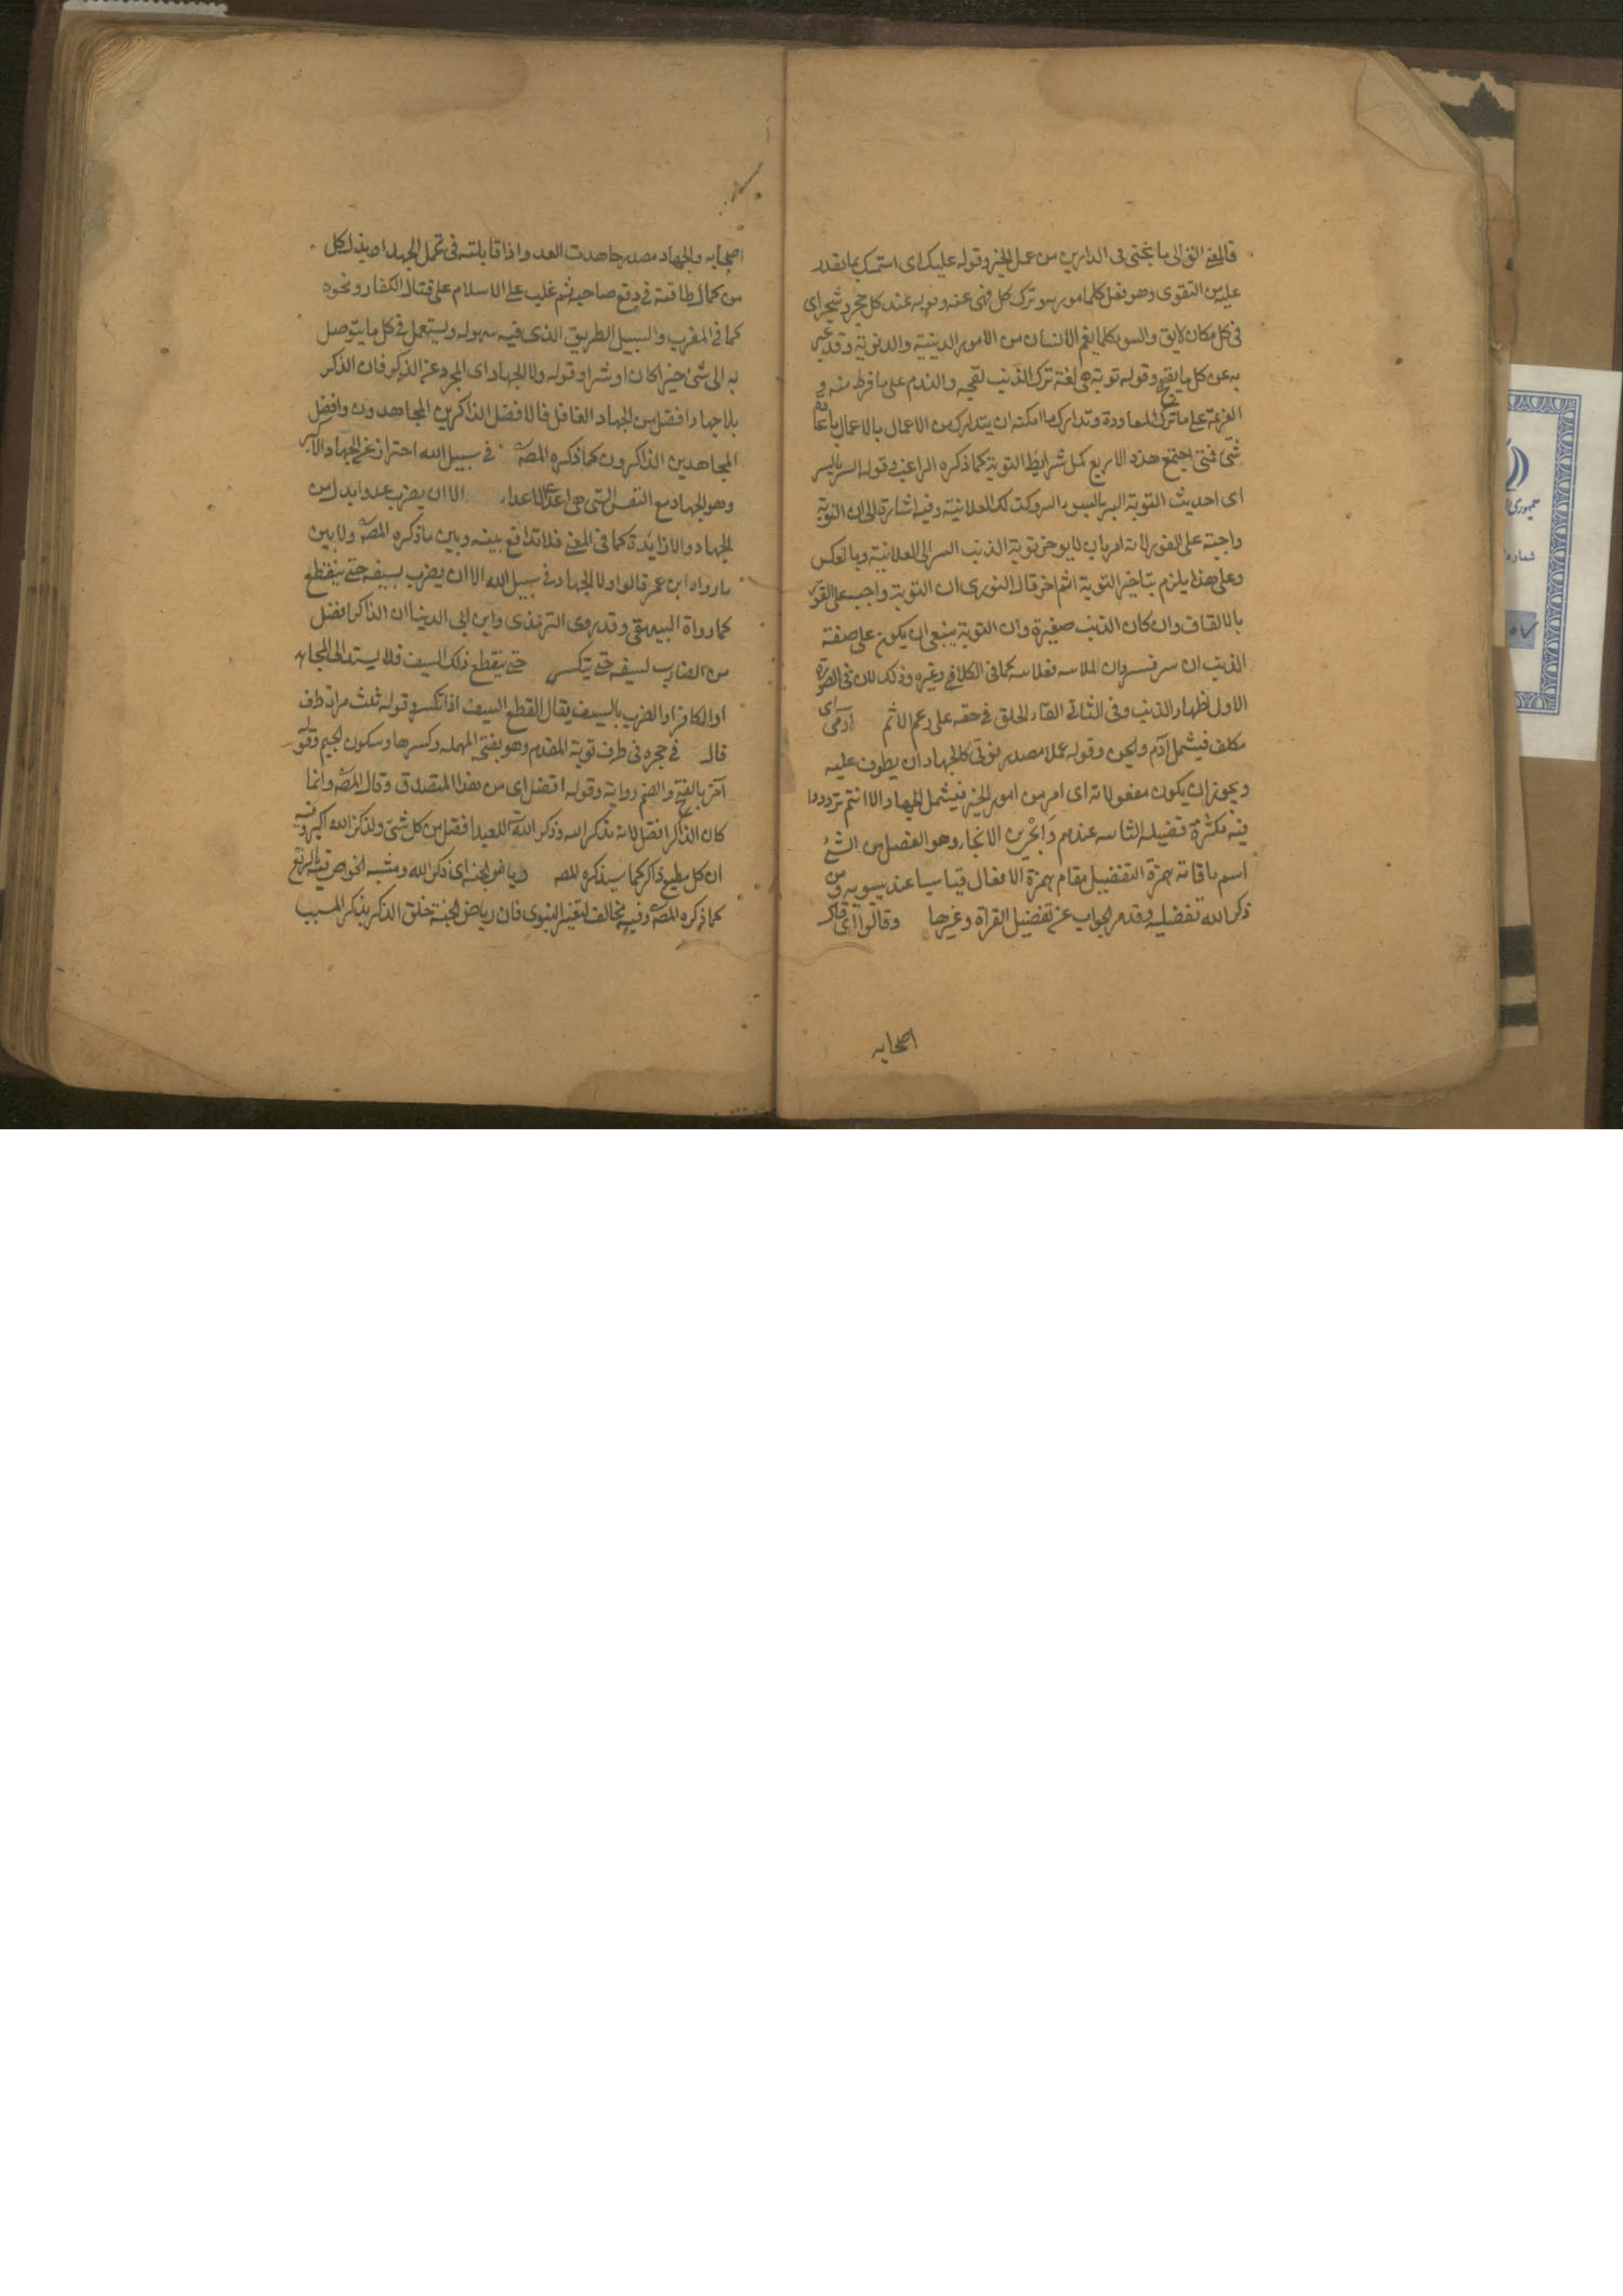 قالمعنى القى الى ما ينجنى فى الدارين من عمل الخير وقوله عليك اى استمسك بما يقدر
عليه من التقوى وهو بفعل كلما مور به وترك كل نهى عنه وقوله عند كل حجر وشجر اى
فى كل مكان لايق والسوء كلما يغم الانسان من الامور الدينية والدنوية وقد عبر
به عن كل ما يقبح وقوله توبة هى لغة ترك الذنب لقبحه والندم على ما فرط منه و
العزيمة على ما ترك المعاودة وتدارك ما امكنه ان يتدارك من الاعمال بالاعمال باعادة
شئ فتى اجتمع هذه الاربع كمل شرايط التوبة كما ذكره الراغب وقوله السر بالسر
اى احديث التوبة السر بالسوء السر وكذلك العلانية وفيه اشارة الى ان التوبة
واجبة على الفور لانه امر بان لا يوخر توبة الذنب السر الى العلانية وبالعكس
وعلى هذا يلزم بتاخير التوبة اثم اخر قال النووى ان التوبة واجب على الفور
بالاتفاق وان كان الذنب صغيرة وان التوبة ينبغى ان يكون على صفة
الذنب ان سر فسر وان علانية فعلانية كما فى الكلافى وغيره وذلك لان فى الصورة
الاول اظهار الذنب وفى الثانى القاء الخلق فى حقه على زعم الاثم آدمى اى
مكلف فيشمل آدم والجن وقوله عملا مصدر نوتى كالجهاد ان يطوف عليه
ويجوز ان يكون مفعولا له اى امر من امور الخير فيشمل الجهاد الا انتم ترددوا
فيه لكثرة فضيلة الثابتة عندهم وانجى من الانجاء وهو الفصل من الشئ
اسم باقامة همزة التفضيل مقام همزة الافعال قياسيا عند سيبويه ومن
ذكر الله تفضيلية وقد مر الجواب عن تفضيل القرآة وغيرها وقالوا اى قال
اصحابه
اصحابه والجهاد مصدر جاهدت العدو اذا قابلته فى تحمل الجهد او بذل كل
من كمال طاقته فى دفع صاحبه ثم غلب على الاسلام على قتال الكفار ونحوه
كما فى المغرب والسبيل الطريق الذى فيه سهولة ويستعمل فى كل ما يتوصل
به الى شئ خيرا كان او شرا وقوله ولا الجهاد اى المجرد عن الذكر فان الذكر
بلا جهاد افضل من الجهاد الغافل فالافضل الذاكرين المجاهدون وافضل
المجاهدين الذاكرون كما ذكره المصه فى سبيل الله احتراز عن الجهاد الاكبر
وهو الجهاد مع النفس التى هى اعدى الاعداء الا ان يضرب عدوا بدل من
الجهاد والا زايدة كما فى المغنى فلا تدافع بينه وبين ما ذكره المصه ولا بين
ما رواه ابن عمر قالوا ولا الجهاد فى سبيل الله الا ان يضرب بسيفه حتى ينقطع
كما رواه البيهقى وقد روى الترمذى وابن ابى الدنيا ان الذاكر افضل
من الضارب لسيفه حتى يتكسر حتى ينقطع ذلك السيف فلا يستد الى المجاهد
او الكافر او الضرب بالسيف يقال القطع السيف اذا تكسر وقوله ثلث مرات ظرف
قال فى حجره فى طرف ثوبه المقدم وهو بفتح المهملة وكسرها وسكون الجيم وقوله
آخر بالفتح والضم رواية وقوله افضل اى من هذا المتصدق وقال المصه وانما
كان الذاكر افضل لانه يذكر الله وذكر الله للعبد افضل من كل شئ ولذكر الله اكبر وفيه
ان كل مطيع ذاكر كما سيذكره المصه رياض الجنة اى ذكر الله ومشبه الخواص قيه بالرتع
كما ذكره المصه وفيه مخالف لتفسير النبوى فان رياض الجنة خلق الذكر بذكر المسبب
جمهورى
شماره